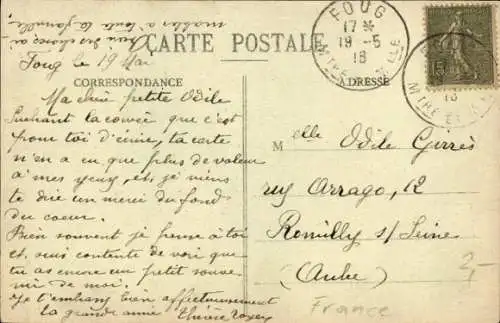 Bien des choses ai-
mables à toute ta famille
CARTE POSTALE
Foug le 19 Mai
CORRESPONDANCE
ADRESSE
FOUG
17 *
19 - 5
18
Ma chère petite Odile
Sachant la corvée que c'est
pour toi d'écrire, ta carte
n'en a eu que plus de valeur
à mes yeux, et je viens
te dire un merci du fond
du coeur.
Bien souvent je pense à toi
et suis contente de voir que
tu as encore un petit souve
nir de moi.
Je t'embrasse bien affectueusement
ta grande amie Thérèse
Melle Odile Garrès
rue Arrago, 12
Romilly s/ Seine
(Aube)
2,-
France